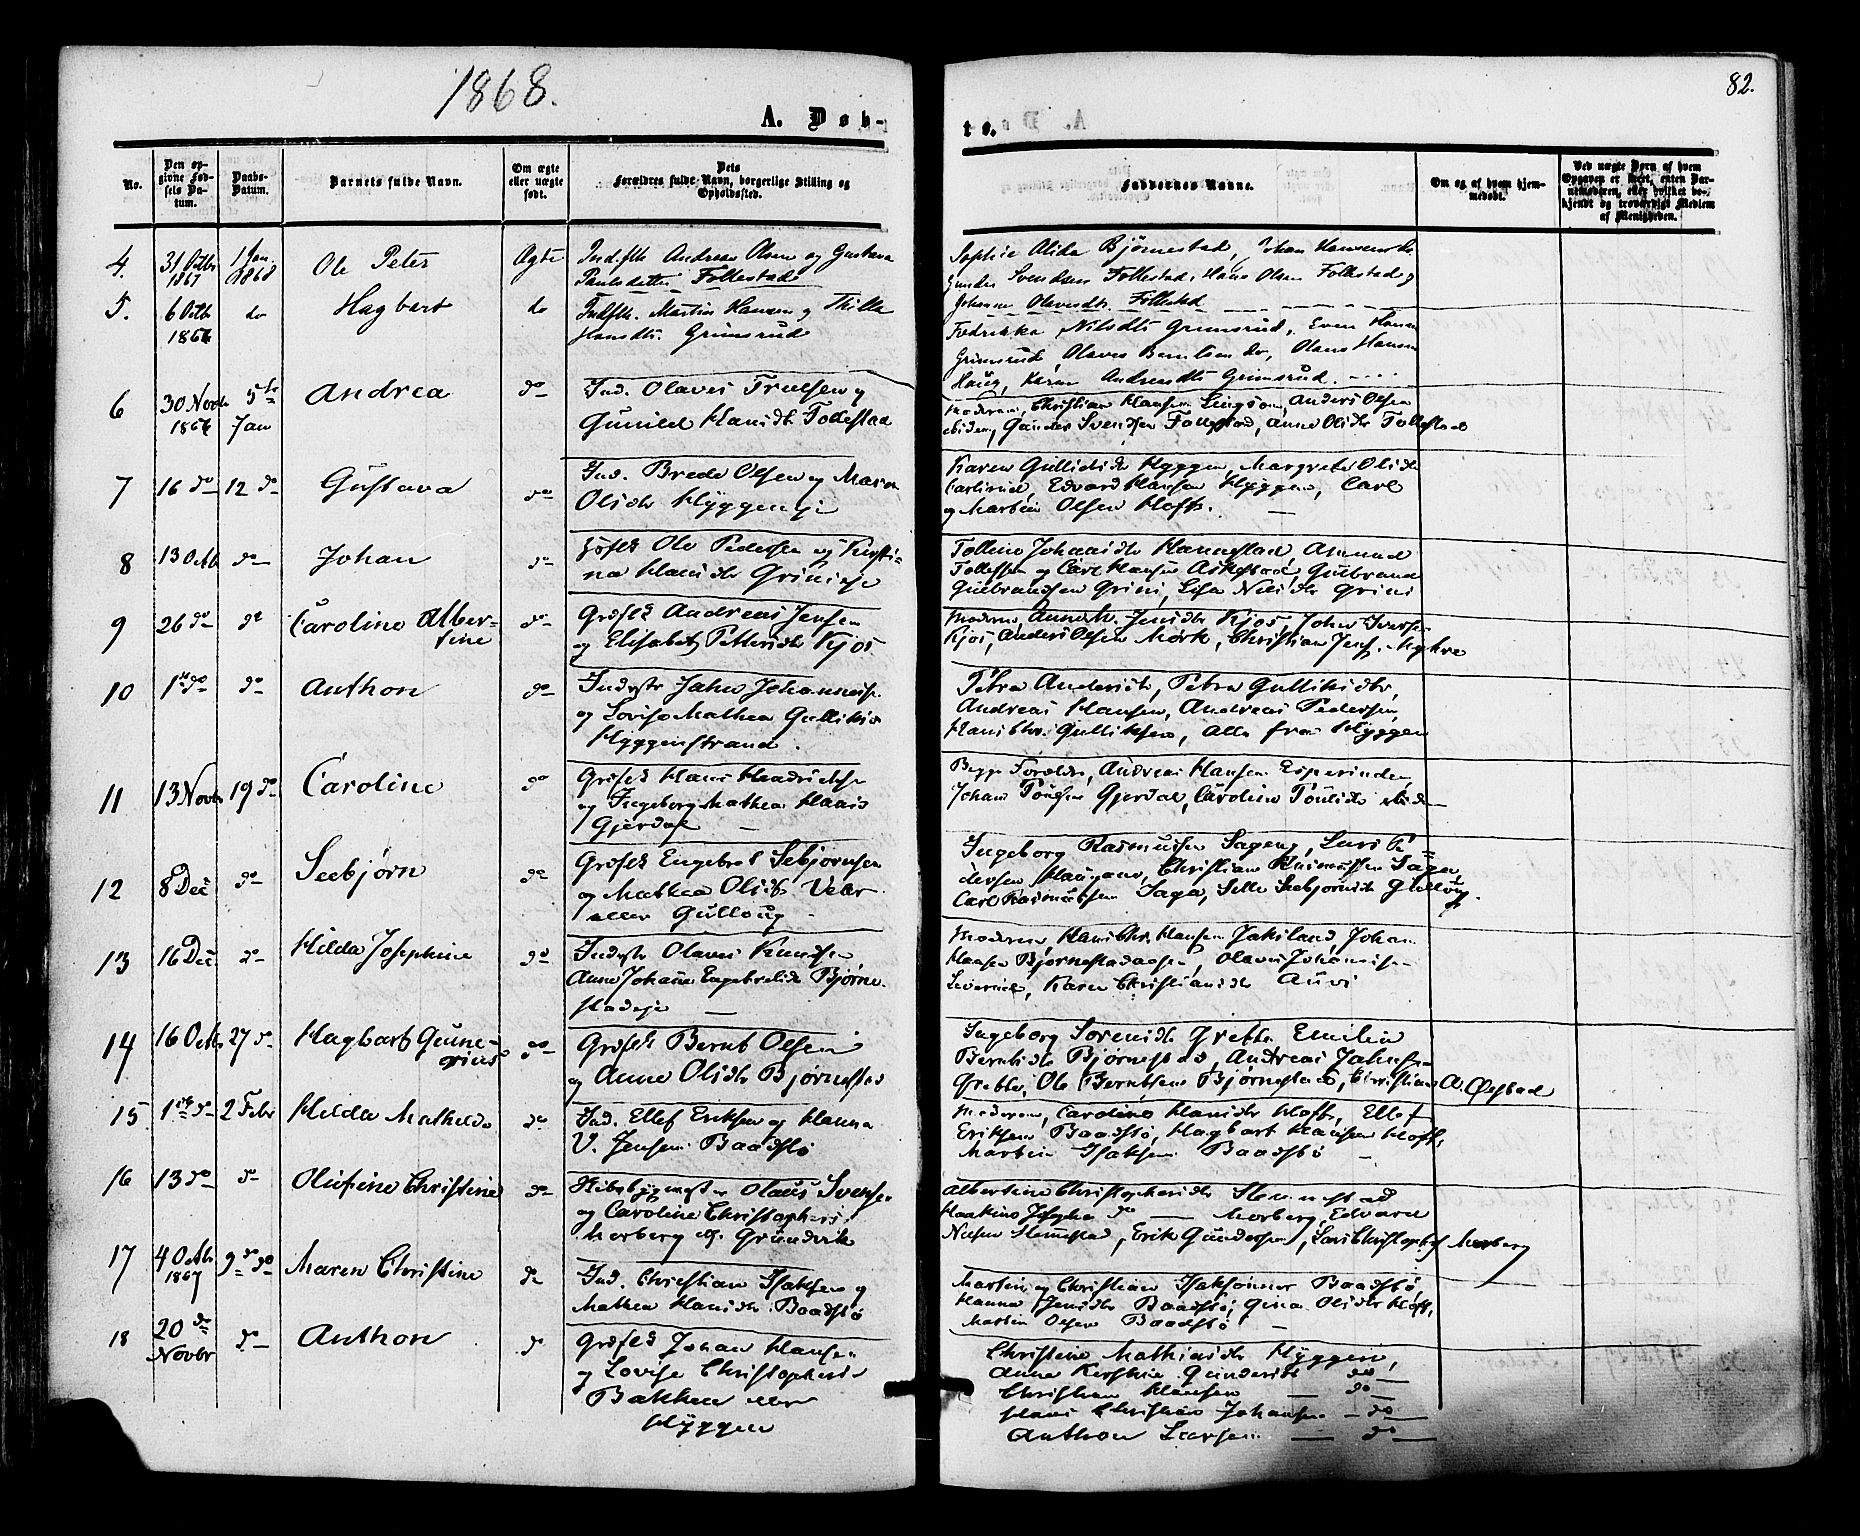 1868.
82.
A. Døb-
te.
No.
Den op-
givne Fød-
sels Da-
tum.
Daabs-
Datum.
Barnets fulde Navn.
Om ægte
eller uægte
født.
Dets
Forældres fulde Navn, borgerlige Stilling og
Opholdssted.
Faddernes Navne.
Om og af hvem hjem-
medøbt.
Ved uægte Børn af hvem
Opgaven er skeet, enten Bar-
nemoderen, eller hvilket be-
kjendt og troværdigt Medlem
af Menigheden.
4. 31 Octbr 1867 1 Jan. 1868 Ole Peter Ægte Indsth Andreas Olsen og Gustava
Paulsdatter Follestad
Sophie Alida Bjørnestad, Johan Hansen do
Gunder Svendsen Follestad, Hans Olsen Follestad og
Johanne Olavesdtr. Follestad
5. 6 Octb 1867 do Hagbart do Indsth. Martin Hansen og Thilla
Hansdtr. Grimsrud
Fredrikka Nilsdtr Grimsrud, Even Hansen
Grimsrud, Olaves Berntsen do, Olaus Hansen
Haug, Karen Andreasdtr Grimsrud.
6 30 Novbr 1867 5te Jan Andrea do Ind. Olaves Truelsen og
Gunild Hansdtr Follestad
Moderen, Christian Hansen, Anders Olsen
ibidem, Gunder Svendsen Follestad, Anne Olsdtr Follestad
7 16 do 12 do Gustava do Ind. Brede Olsen og Maren
Olisdtr Hyggen eje
Karen Gulliksdtr Hyggen, Margrete Olsdtr
Edvard Hansen Hyggen, Carl
og Martin Olsen Hofts.
8 13 Octb do Johan do Ole Pedersen og Kirsti-
na Hansdtr Grini eje
Tolline Johansdtr Hannestad, Amund
Tollefsen og Carl Hansen Askestad, Gulbrand
Gulbrandsen Grini, Lisa Nilsdtr Grini
9 26 do do Caroline Alber-
tine do Grdflk Andreas Jensen
og Elisabeth Pettersdtr Kjos
Moderen, Anne M. Jensdtr Kjos, John Iversen
Kjos, Anders Olsen Mørk, Christian Jens. Myhre
10 1ste do do Anthon do Indstr John Johannese.
og Lovise Mathea Gulliks
Hyggenstrand.
Petra Andersdtr, Petra Gulliksdtr,
Andreas Hansen, Andreas Pedersen,
Hans Chr. Gulliksen, Alle fra Hyggen
11 13 Novbr 19 do Caroline do Grdflk Hans Hendrikse
og Ingeborg Mathea Hans
Gjerdal
Begge Foreldre, Andreas Hansen Esperinden,
Johan Poulsen Gjerdal, Caroline Poulsdtr
12 8 Dec do Seebjørn do Grdflk Engebret Sebjørnsen
og Mathea Olsdtr Vear
eller Gulloug
Ingeborg Rasmusen Sagen, Lars Pe-
dersen Haugane, Christian Rasmussen Sagen,
Carl Rasmussen Saga, Sille Seebjørnsdtr Gulloug.
13 16 Dec do Hilda Josephine do Indstr Olaves Knudsen
Anne Johanne Engebretsdtr Bjørne-
stadeje
Moderen, Hans Chr. Hansen Jaksland, Johan
Hansen Bjørnestadaasen, Olaves Johansen
Karen Christiansdtr Auvi
14 16 Octb 27 do Hagbart Gune-
rius do Grdflk Bernt Olsen
og Anne Olsdtr Bjørnestad
Ingeborg Sørensdtr Grette Emilie
Berntsdtr Bjørnestad, Andreas Johns.
Grette, Ole Berntsen Bjørnestad, Christian A. Øystad
15 1ste do 2 Febr Hilda Mathilde do Ind. Ellef Eriksen og Hanna
V. Jensen Baadstø
Moderen, Caroline Hansdtr Hofts, Ellef
Eriksen Baadstø, Hagbart Hansen Hofts,
Martin Isaksen Baadstø
16 13 do do Olufine Christine do Skibsbygmestr Olaus Svense
og Caroline Christophers.
Morberg ell. Grundvik
Albertine Christophersdtr Stemmestad
Haakine Josepha do Morberg, Edvard
Nielsen Stemestad, Erik Gundersen, Lars Christophs Morberg
17 4 Octb 1867 9de do Maren Christine do Ind. Christian Isaksen og
Mathea Hansdtr Baadstø
Martin og Christian Isaksønner Baadstø
Hanna Jensdtr Baadstø, Gina Olsdtr Hofts,
Martin Olsen Baadstø
18 20 de Novbr do Anthon do Grdflk Johan Hansen
og Lovise Christophersd
Bakken eller
Hyggen
Christine Mathiasdtr Hyggen,
Anne Kirstine Gundersdtr do
Christian Hansen do
Hans Christian Johansen do
Anthon Larsen do